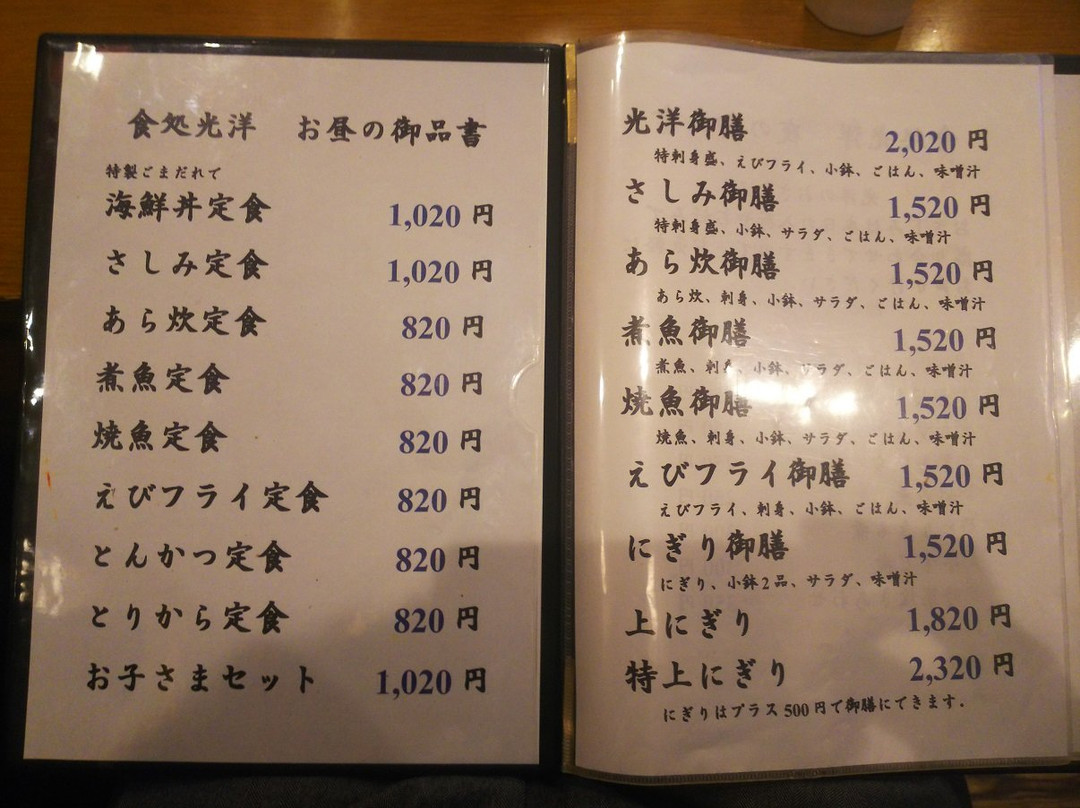 食処光洋 お昼の御品書
特製ごまだれで
海鮮丼定食 1,020 円
さしみ定食 1,020 円
あら炊定食 820 円
煮魚定食 820 円
焼魚定食 820 円
えびフライ定食 820 円
とんかつ定食 820 円
とりから定食 820 円
お子さまセット 1,020 円
光洋御膳 2,020 円
特刺身盛、えびフライ、小鉢、ごはん、味噌汁
さしみ御膳 1,520 円
特刺身盛、小鉢、サラダ、ごはん、味噌汁
あら炊御膳 1,520 円
あら炊、刺身、小鉢、サラダ、ごはん、味噌汁
煮魚御膳 1,520 円
煮魚、刺身、小鉢、サラダ、ごはん、味噌汁
焼魚御膳 1,520 円
焼魚、刺身、小鉢、サラダ、ごはん、味噌汁
えびフライ御膳 1,520 円
えびフライ、刺身、小鉢、ごはん、味噌汁
にぎり御膳 1,520 円
にぎり、小鉢2品、サラダ、味噌汁
上にぎり 1,820 円
特上にぎり 2,320 円
にぎりはプラス500円で御膳にできます.